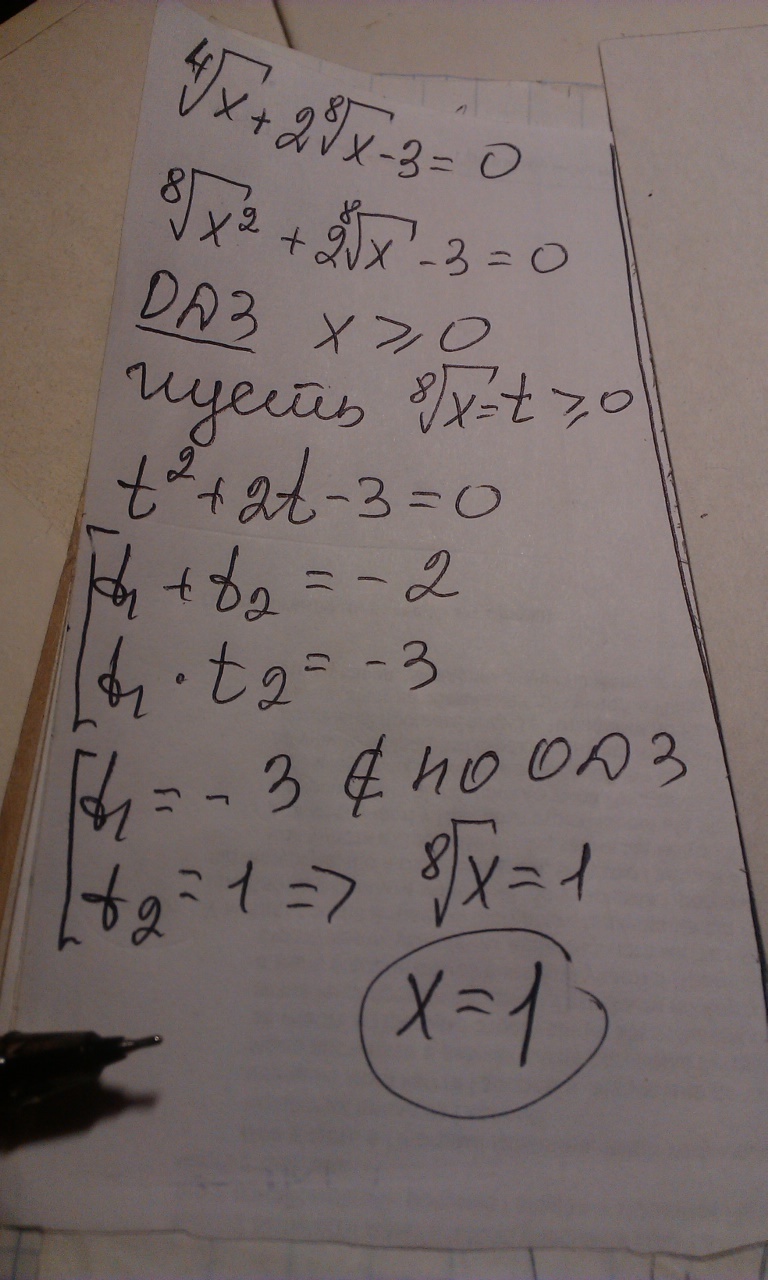 ⁴√x + 2⁸√x - 3 = 0
⁸√x² + 2⁸√x - 3 = 0
ОДЗ x ≥ 0
пусть ⁸√x = t ≥ 0
t² + 2t - 3 = 0
t₁ + t₂ = - 2
t₁ · t₂ = - 3
t₁ = - 3 ∉ по ОДЗ
t₂ = 1 => ⁸√x = 1
x = 1